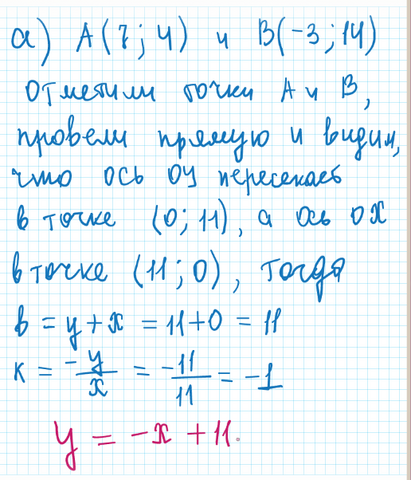 а) А(7; 4) и В(-3; 14)
Отметили точки А и В,
провели прямую и видим,
что ось ОУ пересекает
в точке (0; 11), а ось ОХ
в точке (11; 0), тогда
в = у + х = 11 + 0 = 11
к = -у/х = -11/11 = -1
у = -х + 11.